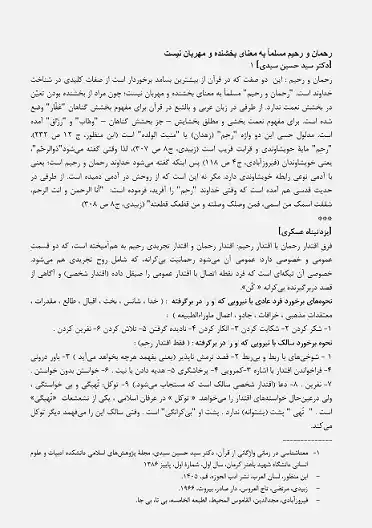 رحمان و رحیم مسلماً به معنای بخشنده و مهربان نیست
[دکتر سید حسین سیدی] ۱
رحمان و رحیم : این دو صفت که در قرآن از بیشترین بسامد برخوردار است از صفات کلیدی در شناخت
خداوند است. "رحمان و رحیم" مسلماً به معنای بخشنده و مهربان نیست؛ چون مراد از بخشنده بودن تعیّن
در بخشش نعمت ندارد. از طرفی در زبان عربی و بالتبع در قرآن برای مفهوم بخشش گناهان "غفّار" وضع
شده است. برای مفهوم نعمت بخشی و مطلق بخشایش – جز بخشش گناهان – "وهّاب" و "رزّاق" آمده
است. مدلول حسی این دو واژه "رحِم" (زهدان) یا "منبت الولد" است (ابن منظور، ج ۱۲ ص ۲۳۲).
"رحِم" مایهٔ خویشاوندی و قرابت قریب است (زبیدی، ج۸ ص ۳۰۷)، لذا وقتی گفته می‌شود"ذوالرحْم"،
یعنی خویشاوندان (فیروزآبادی، ج۴ ص ۱۱۸) پس اینکه گفته می‌شود خداوند رحمان و رحیم است؛ یعنی
با آدمی نوعی رابطه خویشاوندی دارد. مگر نه این است که از روحش در آدمی دمیده است. از طرفی در
حدیث قدسی هم آمده است که وقتی خداوند "رحِم" را آفرید، فرموده است: "أنا الرحمن و انت الرحم،
شققت اسمک من اسمی، فمن وصلک وصلته و من قطعک قطعته" (زبیدی، ج۸ ص ۳۰۸)
***
[یزدانپناه عسکری]
فرق اقتدار رحمان با اقتدار رحیم: اقتدار رحمان و اقتدار تجریدی رحیم به هم‌آمیخته است، که دو قسمت
عمومی و خصوصی دارد؛ عمومی آن می‌شود رحمانیت بی‌کرانه، که شامل روح تجریدی هم می‌شود.
خصوصی آن تیکه‌ای است که فرد نقطه اتصال با اقتدار عمومی را صیقل داده (اقتدار شخصی) و آگاهی از
قصد دربرگیرنده بی‌کرانه « کُن».
نحوه‌های برخورد فرد عادی با نیرویی که او را در برگرفته : ( خدا ، شانس ، بخت ، اقبال ، طالع ، مقدرات ،
معتقدات مذهبی ، خرافات ، جادو ، اعمال ماوراءالطبیعه ) :
۱- شکر کردن ۲- شکایت کردن ۳- انکار کردن ۴- نادیده گرفتن ۵- تلاش کردن ۶- نفرین کردن .
نحوه برخورد سالک با نیرویی که او را در برگرفته : ( فقط اقتدار رحیم) :
۱ – شوخی‌های با ربط و بی‌ربط ۲- قصد نرمش ناپذیر (یعنی بفهمد هرچه بخواهد می‌آید ) ۳- باور درونی
۴- فراخواندن اقتدار با اشاره ۳-کمرویی ۴- پرخاشگری ۵- هدیه دادن با نیت . ۶- خواستن بدون خواستن .
۷- نفرین . ۸- دعا (اقتدار شخصی سالک است که مستجاب می‌شود.) ۹- توکل، تُهیگی و بی خواستگی ،
ولی درعین‌حال خواسته‌های اقتدار را می‌خواهد « توکل » در عرفان اسلامی ، یکی از تشعشعات «تهیگی»
است . " تُهی " پشت (پشتوانه) ندارد . پشت او "بی‌کرانگی" است . وقتی سالک این را می‌فهمد دیگر توکل
می‌کند.
---------------
۱- معناشناسی در زمانی واژگانی از قرآن، دکتر سید حسین سیدی، مجلهٔ پژوهش‌های اسلامی دانشکده ادبیات و علوم
انسانی دانشگاه شهید باهنر کرمان، سال اول، شمارهٔ اول، پاییز ۱۳۸۶
- ابن منظور، لسان العرب، نشر ادب الحوزه، قم، ۱۴۰۵.
- زبیدی، مرتضی، تاج العروس، دار صادر، بیروت، ۱۹۶۶.
- فیروزآبادی، مجدالدین، القاموس المحیط، الطبعه الخامسه، بی تا، بی جا.